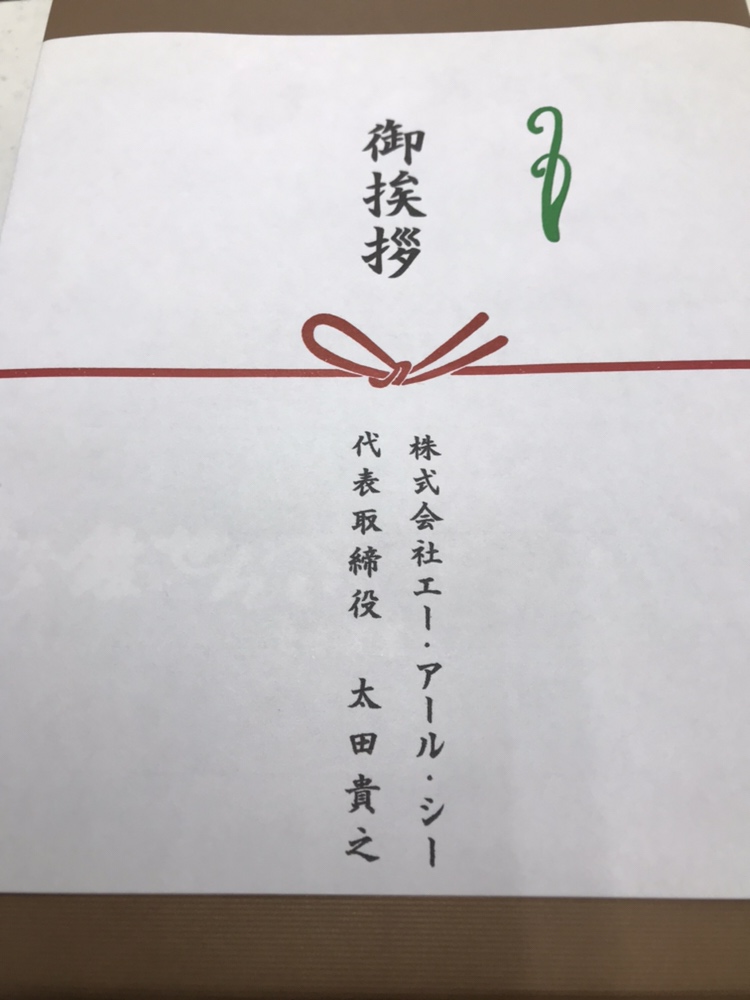 御挨拶
株式会社エー・アール・シー
代表取締役 太田貴之